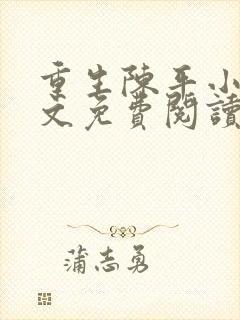 重生陳平小
文免費閱讀
蒲志勇